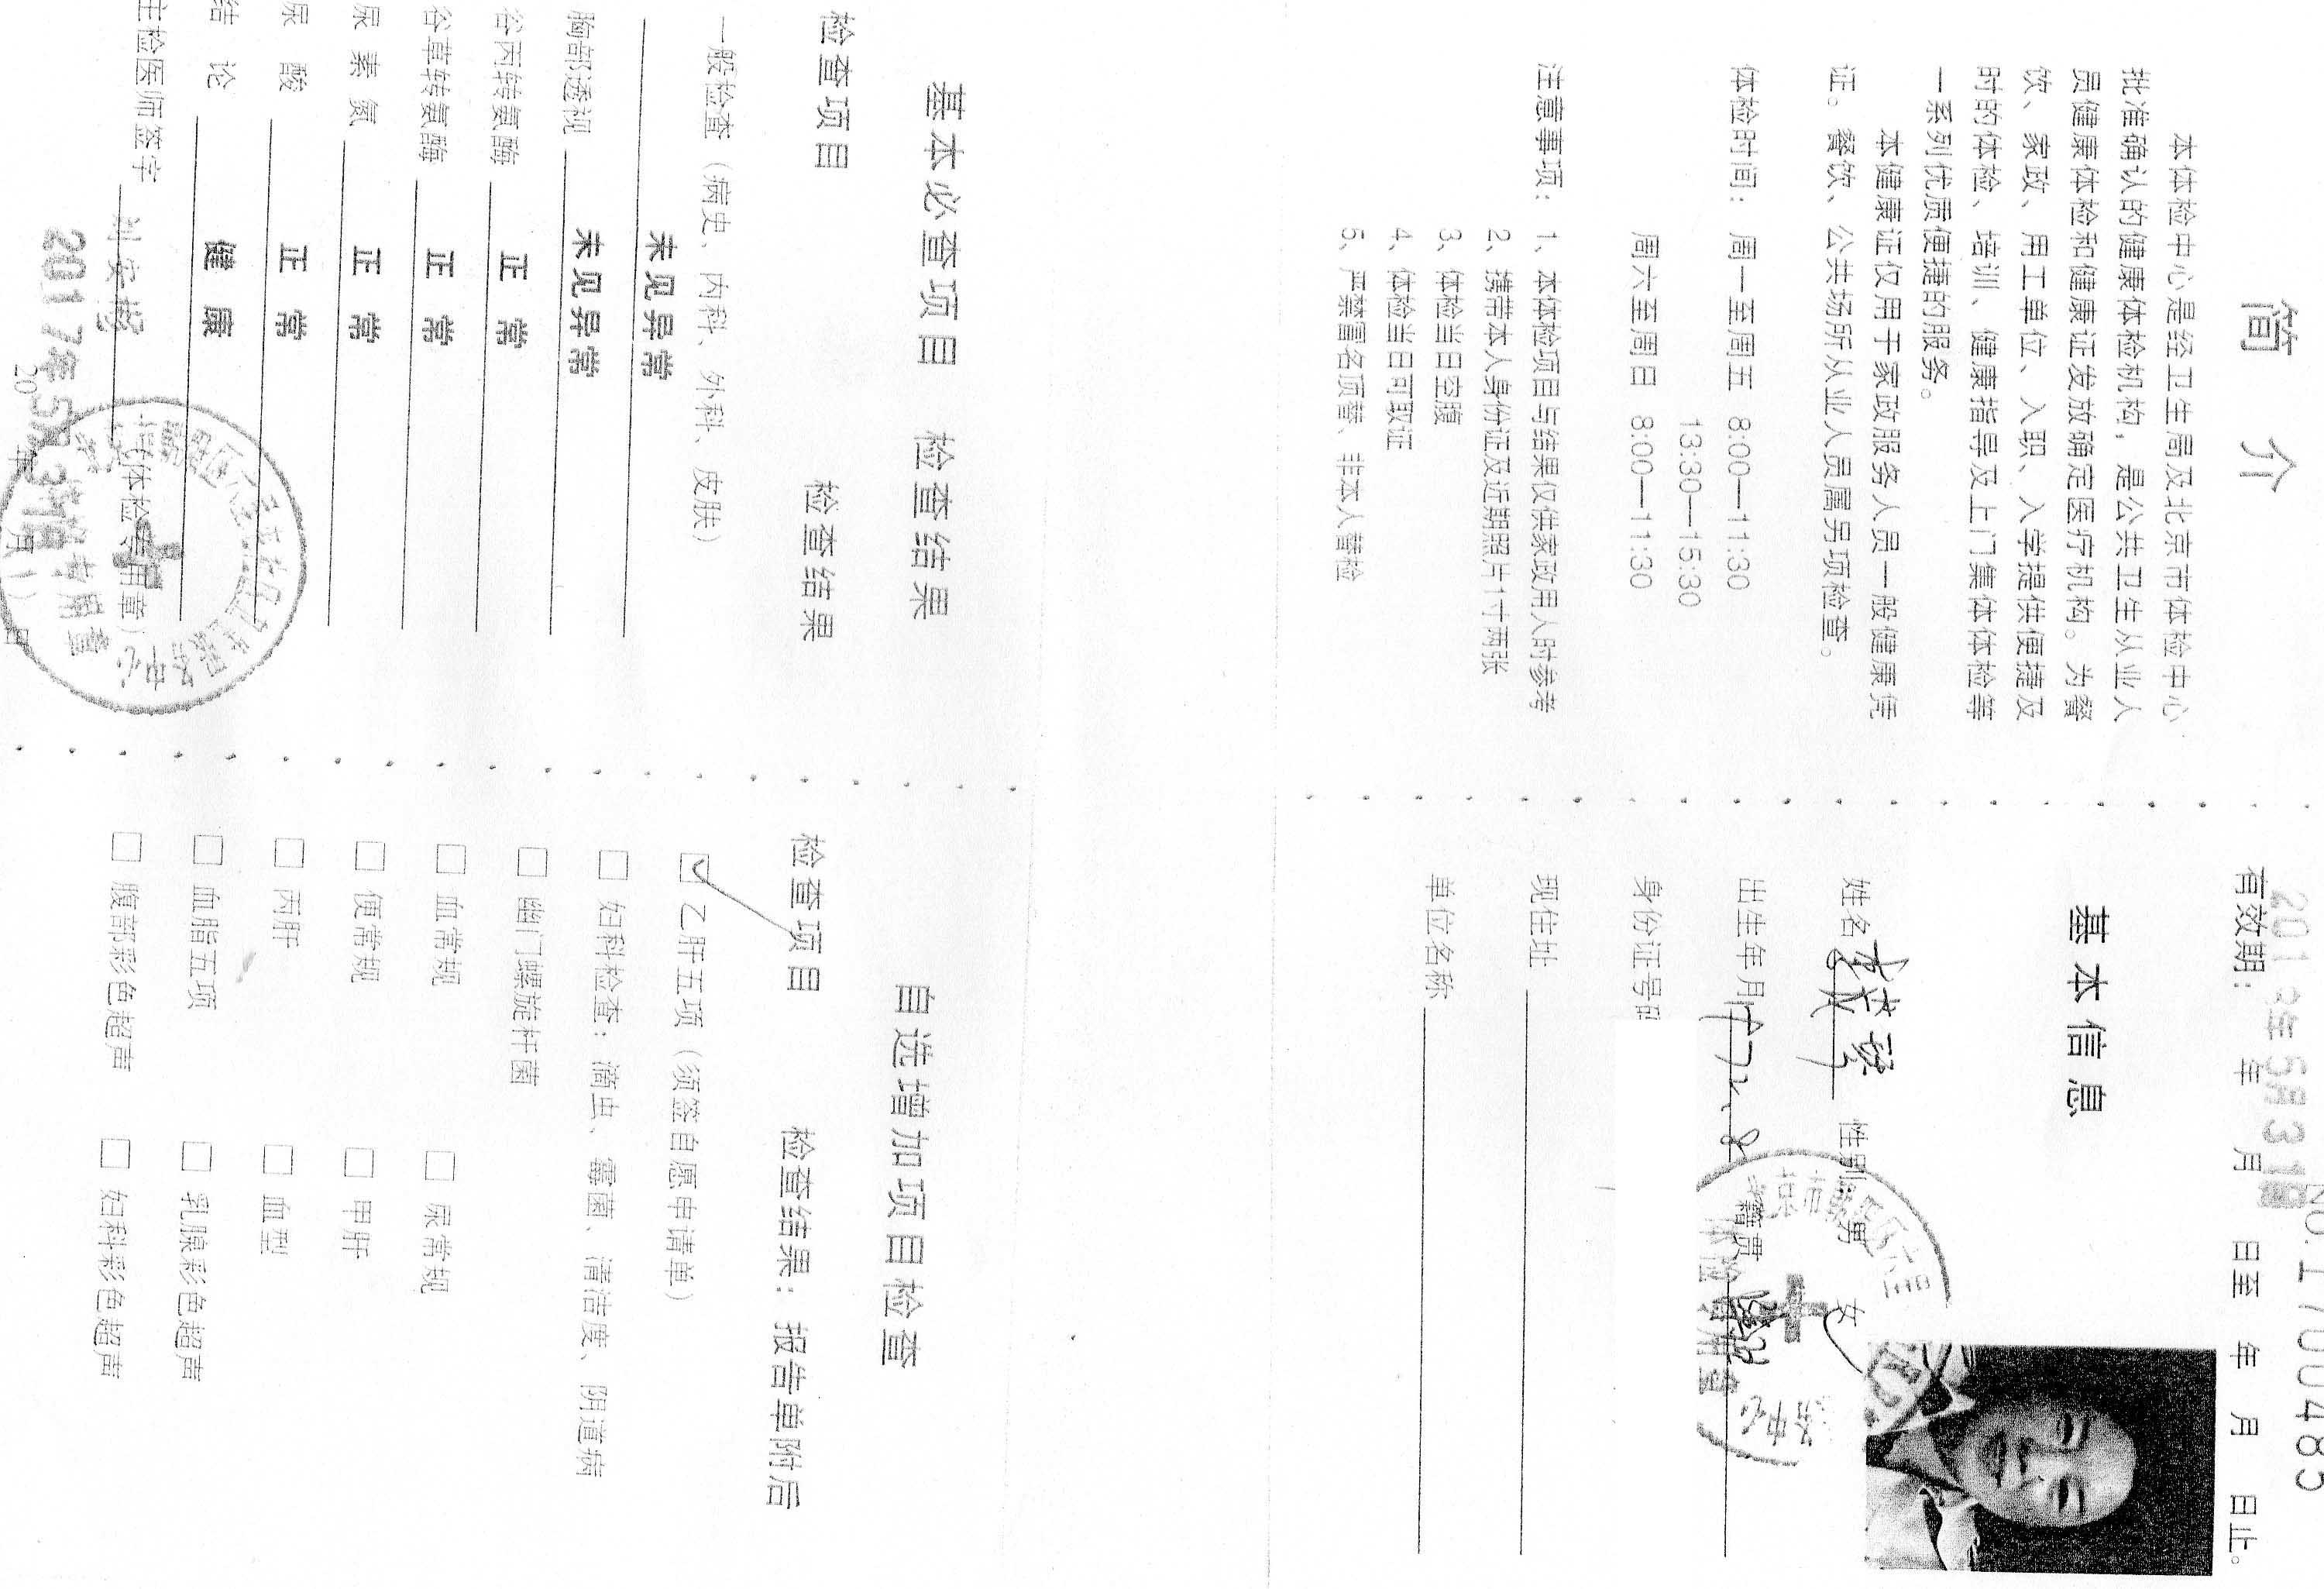 简 介
本体检中心是经卫生局及北京市体检中心
批准确认的健康体检机构，是公共卫生从业人
员健康体检和健康证发放确定医疗机构。为餐
饮、家政、用工单位、入职、入学提供便捷及
时的体检、培训、健康指导及上门集体体检等
一系列优质便捷的服务。
本健康证仅用于家政服务人员一般健康凭
证。餐饮、公共场所从业人员属另项检查。
体检时间： 周一至周五 8:00—11:30
13:30—15:30
周六至周日 8:00—11:30
注意事项： 1、本体检项目与结果仅供家政用人时参考
2、携带本人身份证及近期照片1寸两张
3、体检当日空腹
4、体检当日可取证
5、严禁冒名顶替、非本人替检
No.1700485
有效期： 年 月 日至 年 月 日止。
2018年5月31日
基本信息
姓名 性别 男 女
出生年月 籍贯
身份证号码
现住址
单位名称
基本必查项目 检查结果
检查项目 检查结果
一般检查（病史、内科、外科、皮肤）
未见异常
胸部透视 未见异常
谷丙转氨酶 正 常
谷草转氨酶 正 常
尿 素 氮 正 常
尿 酸 正 常
结 论 健 康
主检医师签字
（体检专用章）
2017年5月31日
20 年 月 日
自选增加项目检查
检查项目 检查结果：报告单附后
乙肝五项（须签自愿申请单）
妇科检查：滴虫、霉菌、清洁度、阴道病
幽门螺旋杆菌
血常规 尿常规
便常规 甲肝
丙肝 血型
血脂五项 乳腺彩色超声
腹部彩色超声 妇科彩色超声